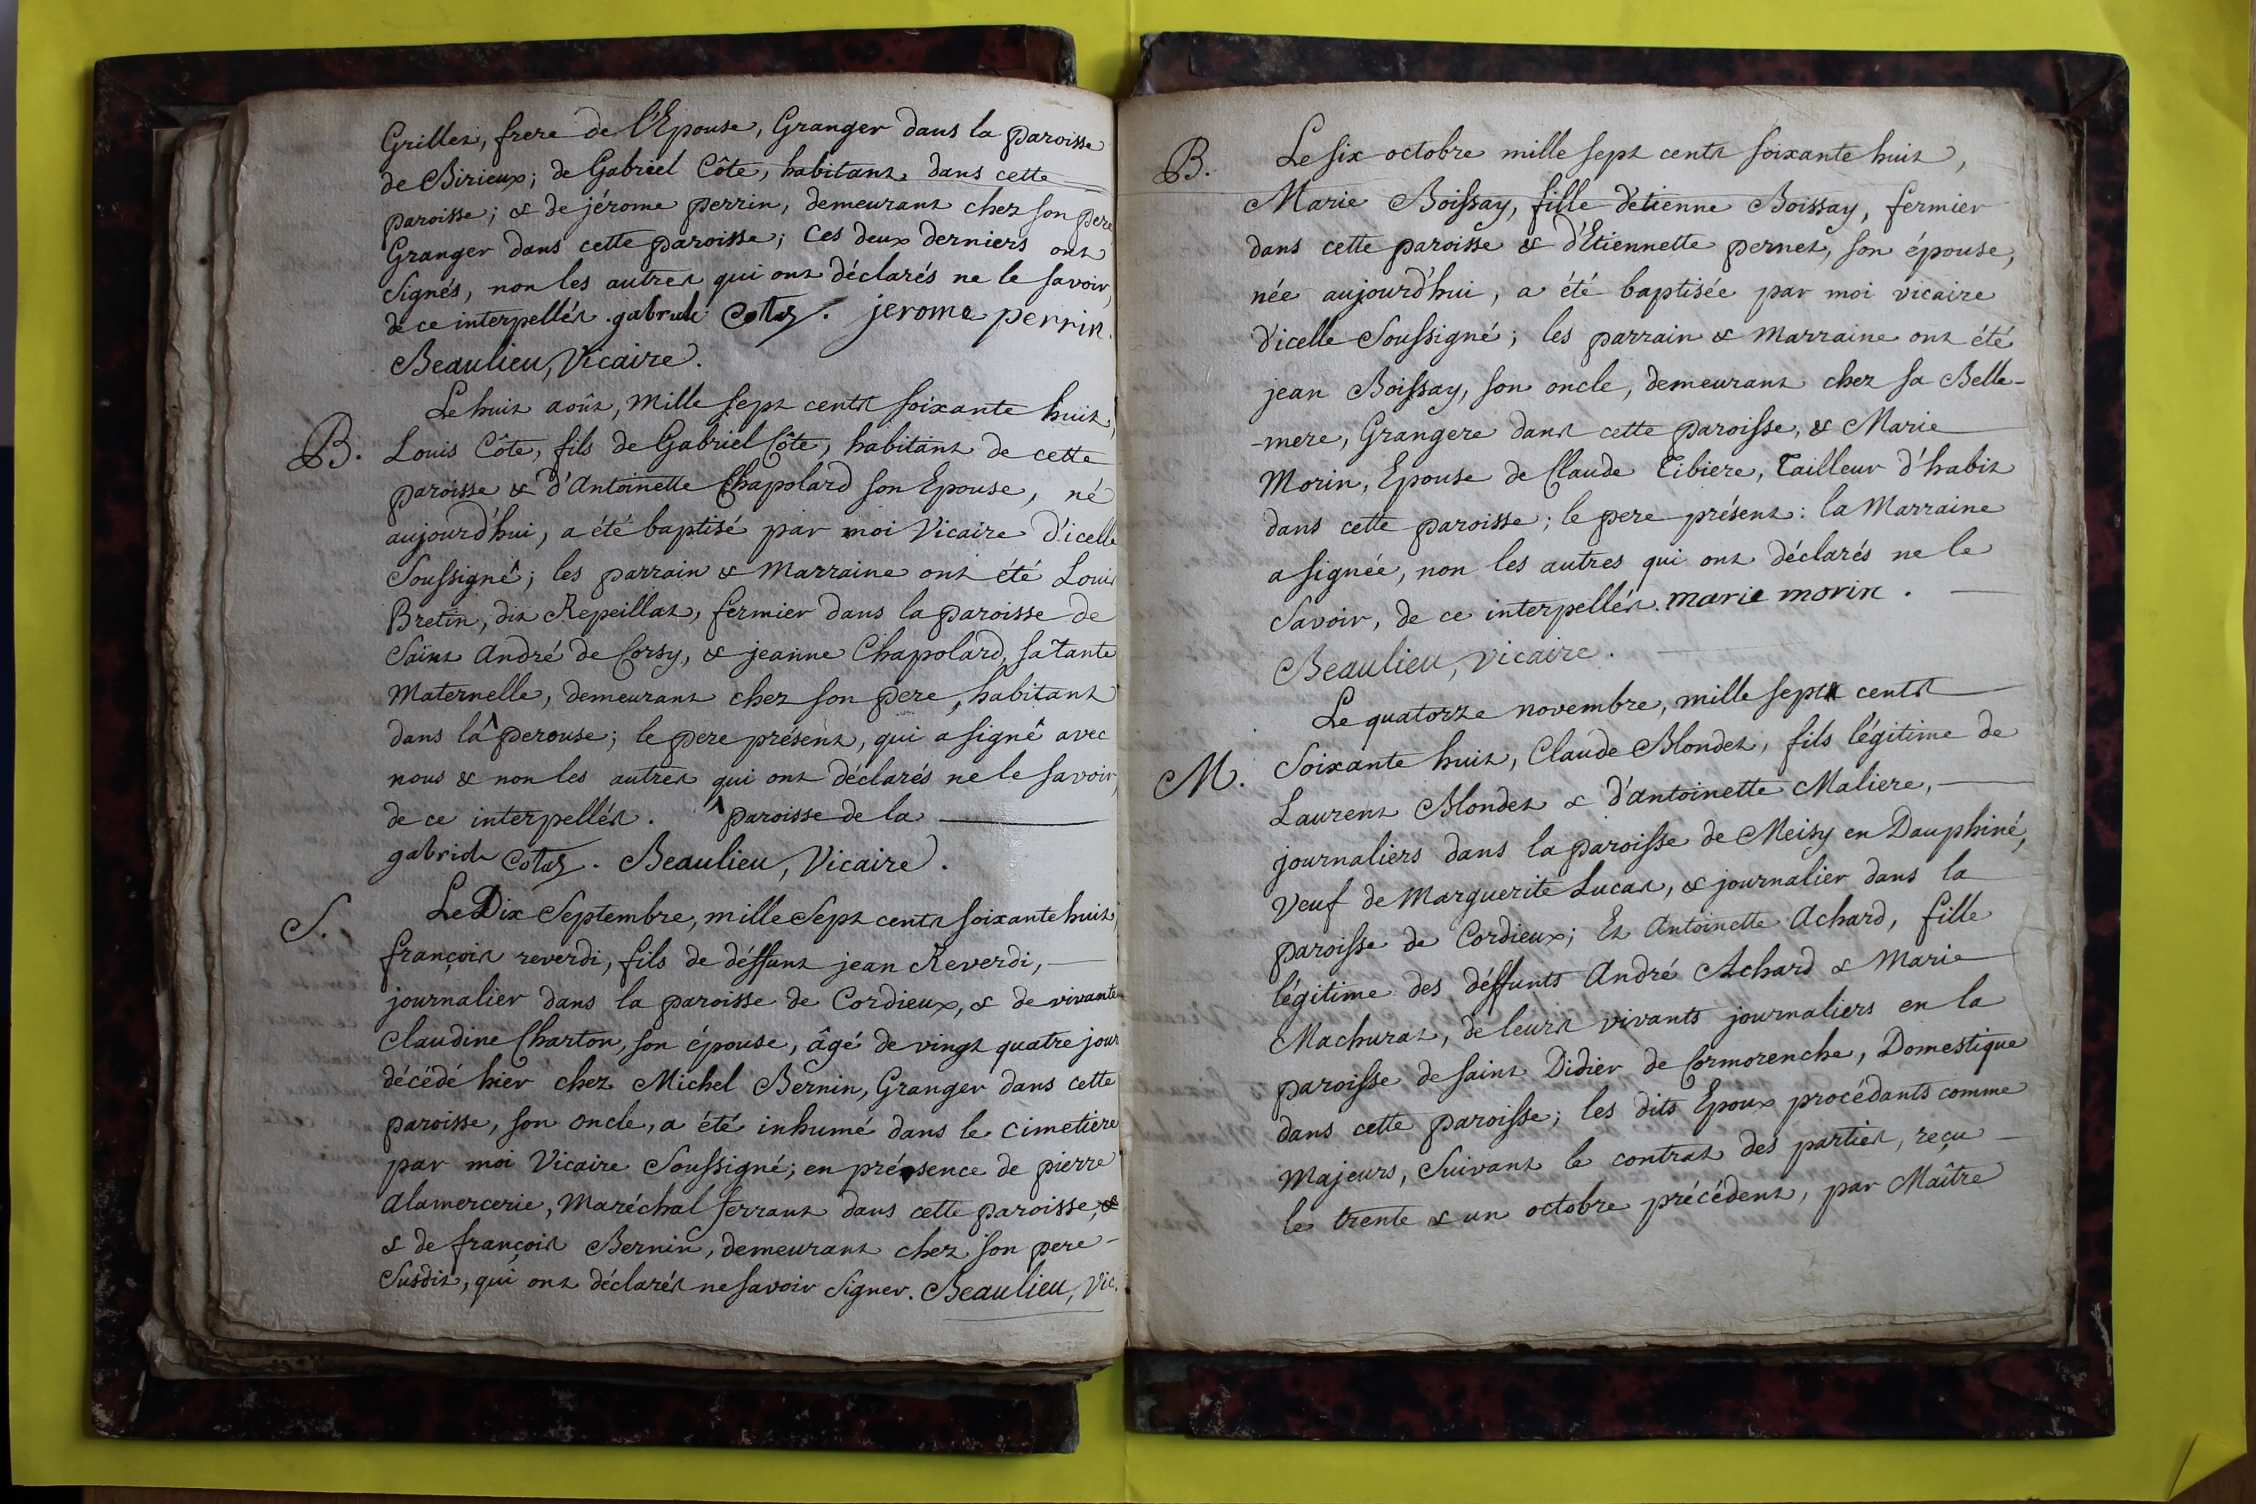 Grillet, frere de l'Epouse, Granger dans la paroisse
de Birieux; de Gabriel Côte, habitant dans cette
paroisse; & de jérome perrin, demeurant chez son pere
Granger dans cette paroisse; ces deux derniers ont
signés, non les autres qui ont déclarés ne le savoir,
de ce interpellés. gabriele Cotaz. jerome perrin.
Beaulieu, Vicaire.
Le huit août, mille sept cents soixante huit,
B. Louis Côte, fils de Gabriel Côte, habitant de cette
paroisse & d'Antoinette Chapolard son Epouse, né
aujourd'hui, a été baptisé par moi Vicaire d'icelle
Soussigné; les parrain & Marraine ont été Louis
Bretin, dit Repeillat, fermier dans la paroisse de
Saint André de Corsy, & jeanne Chapolard, sa Tante
Maternelle, demeurant chez son pere, habitant
dans la ^ perouse; le pere présent, qui a signé avec
nous & non les autres qui ont déclarés ne le savoir,
de ce interpellés. ^ paroisse de la
gabriele Cotaz. Beaulieu, Vicaire.
S. Le Dix Septembre, mille Sept cents soixante huit,
françois reverdi, fils de déffunt jean Reverdi,
journalier dans la paroisse de Cordieux, & de vivante
Claudine Charton, son épouse, âgé de vingt quatre jour
décédé hier chez Michel Bernin, Granger dans cette
paroisse, son oncle, a été inhumé dans le cimetiere
par moi Vicaire Soussigné; en présence de pierre
alamercerie, Maréchal ferrant dans cette paroisse, &
& de françois Bernin, demeurant chez son pere
Susdit, qui ont déclarés ne savoir signer. Beaulieu, Vic.
B. Le six octobre mille sept cents soixante huit,
Marie Boissay, fille d'etienne Boissay, fermier
dans cette paroisse & d'Etiennette pernet, son épouse,
née aujourd'hui, a été baptisée par moi vicaire
d'icelle Soussigné; les parrain & Marraine ont été
jean Boissay, son oncle, demeurant chez sa Belle-
-mere, Grangere dans cette paroisse, & Marie
Morin, Epouse de Claude Tibiere, Tailleur d'habit
dans cette paroisse; le pere présent: la Marraine
a signée, non les autres qui ont déclarés ne le
savoir, de ce interpellés. marie morin.
Beaulieu, Vicaire.
Le quatorze novembre, mille sept cents
M. Soixante huit, Claude Blondet, fils légitime de
Laurent Blondet & d'antoinette Maliere,
journaliers dans la paroisse de Meisy en Dauphiné,
Veuf de Marguerite Lucas, & journalier dans la
paroisse de Cordieux; Et Antoinette Achard, fille
légitime des déffunts André Achard & Marie
Machurat, de leurs vivants journaliers en la
paroisse de saint Didier de Cormorenche, Domestique
dans cette paroisse; les dits Epoux procédants comme
Majeurs, Suivant le contrat des parties, reçu
le trente & un octobre précédent, par Maître